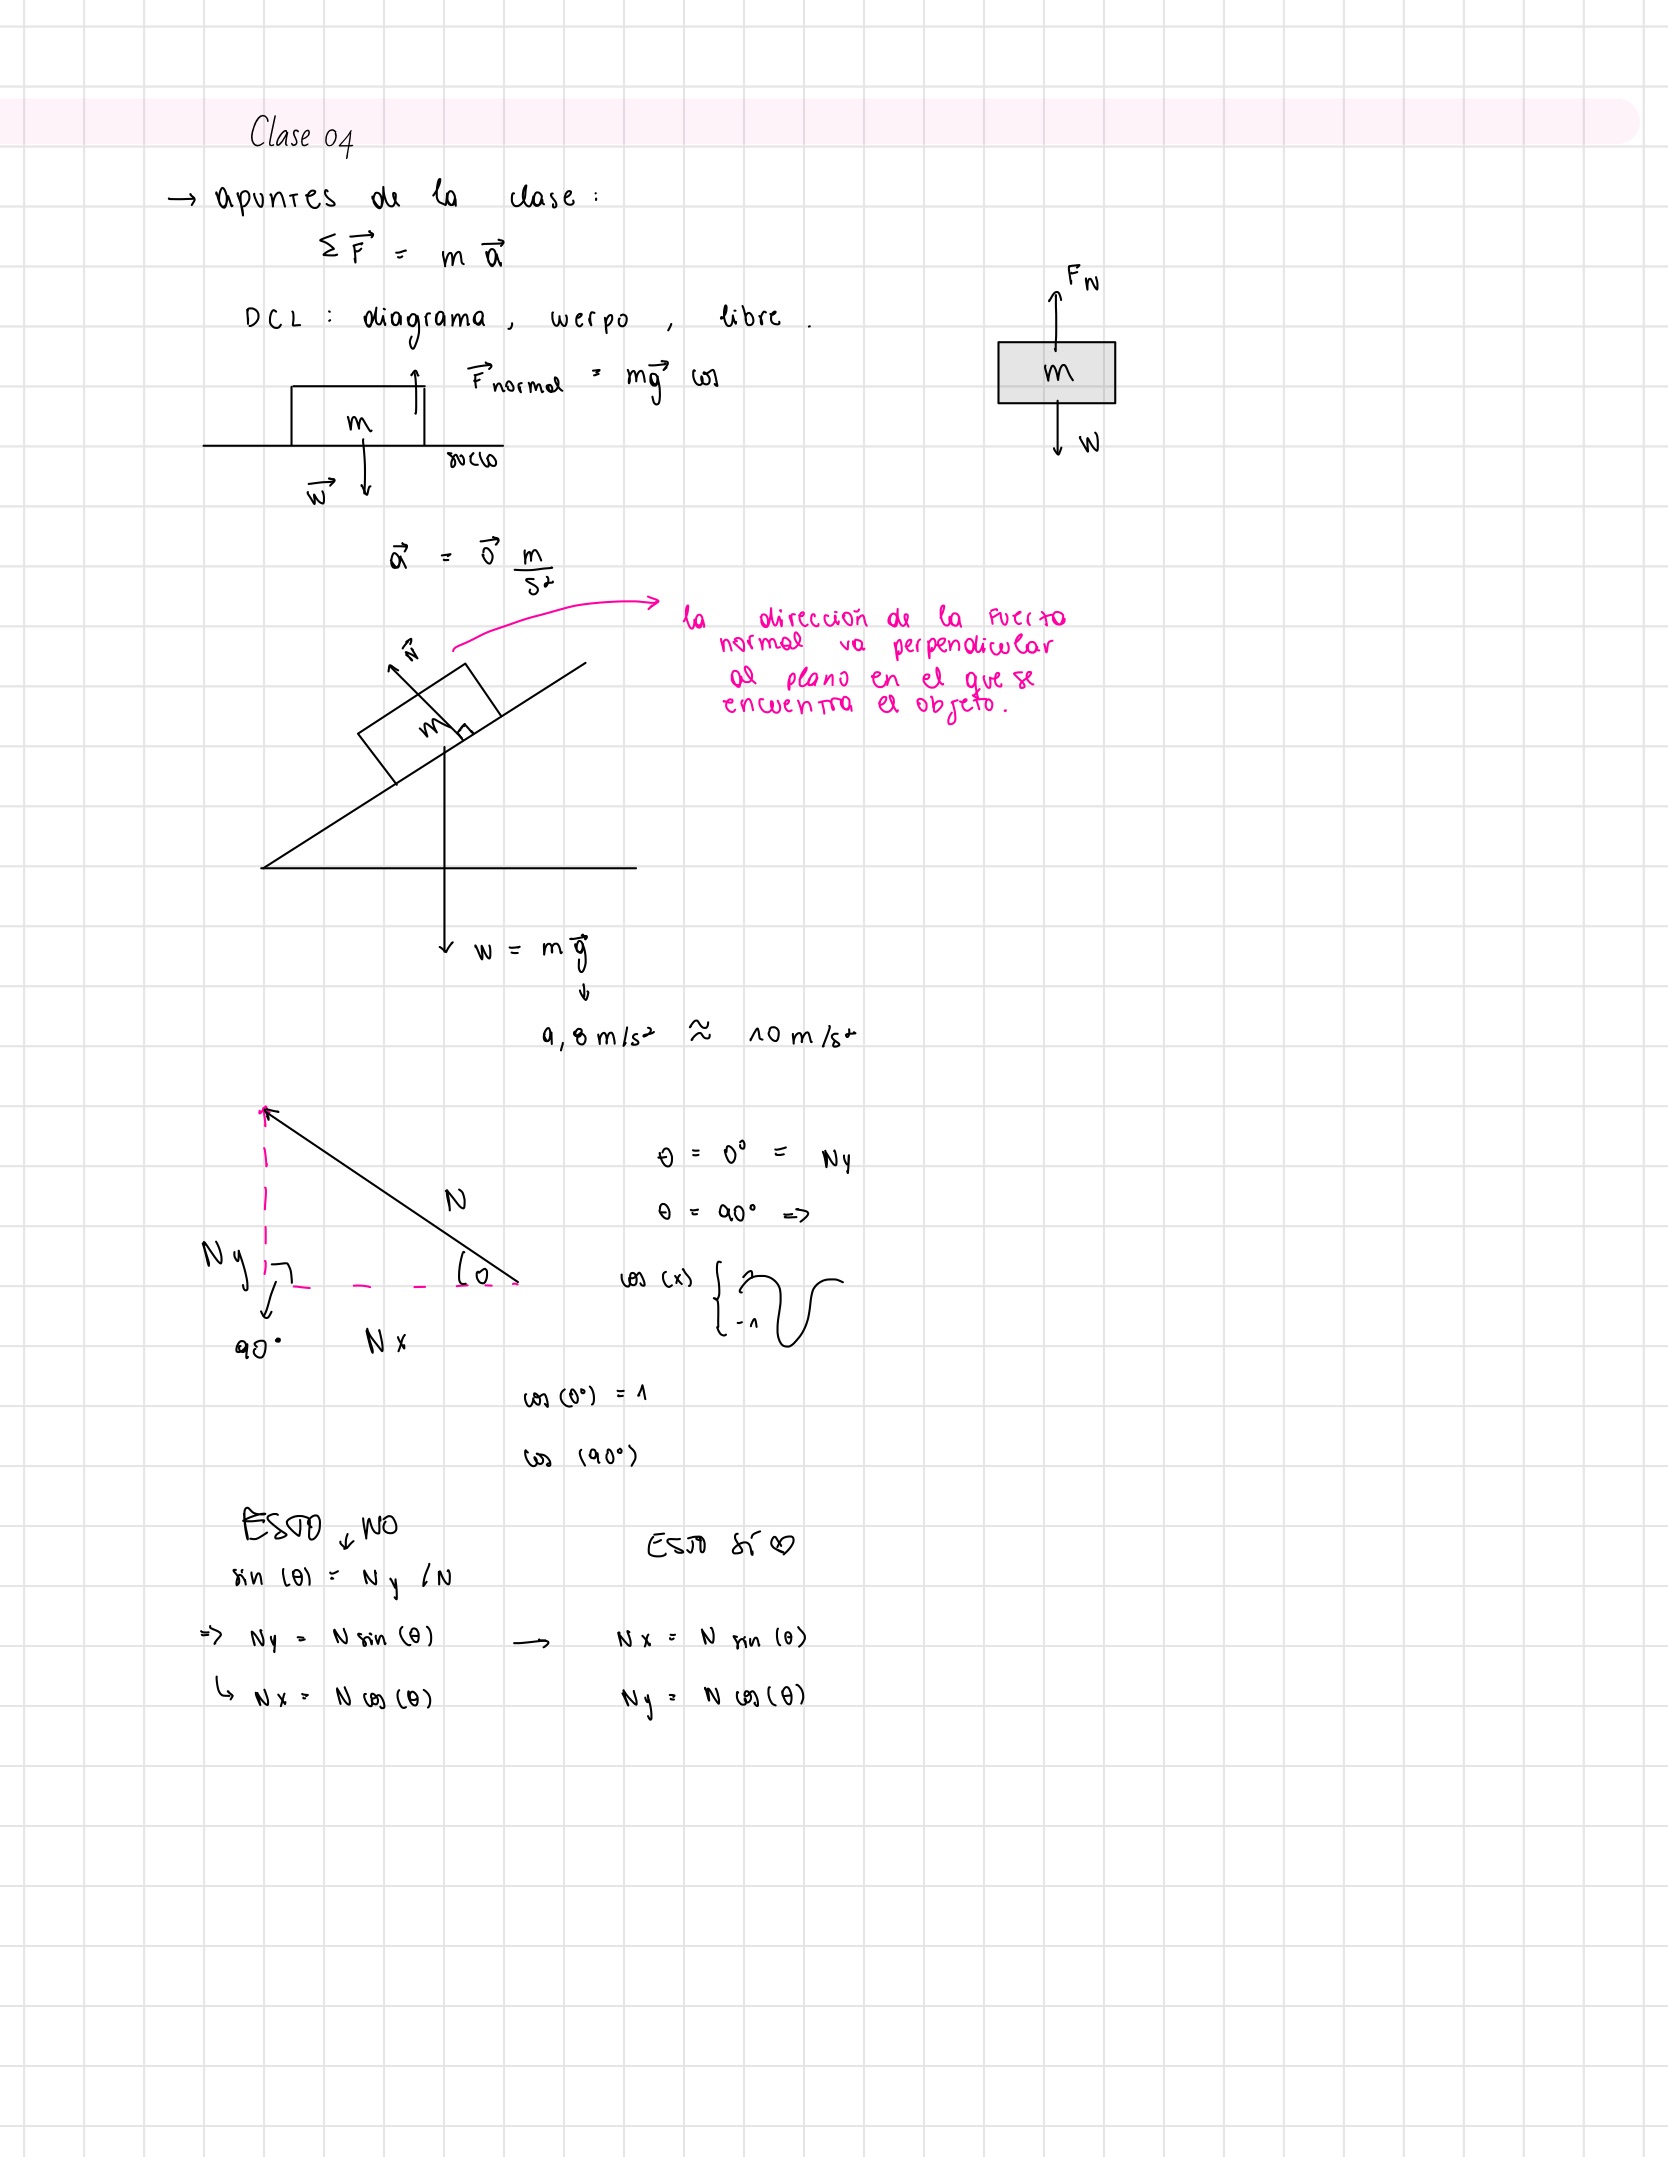 Clase 04
→ apuntes de la clase:
Σ F⃗ = m a⃗
DCL : diagrama, cuerpo, libre.
F⃗normal = mg⃗ cos
m
suelo
W⃗
FN
m
W
a⃗ = 0⃗ m/s²
la dirección de la fuerza
normal va perpendicular
al plano en el que se
encuentra el objeto.
N⃗
m
W = m g⃗
↓
9,8 m/s² ≈ 10 m/s²
N
Ny
θ
90°
Nx
θ = 0° = Ny
θ = 90° =>
cos (x) { 1
-1
cos (0°) = 1
cos (90°)
ESTO ↓ NO
sin (θ) = Ny / N
=> Ny = N sin (θ) →
↳ Nx = N cos (θ)
ESTO SÍ ♡
Nx = N sin (θ)
Ny = N cos (θ)